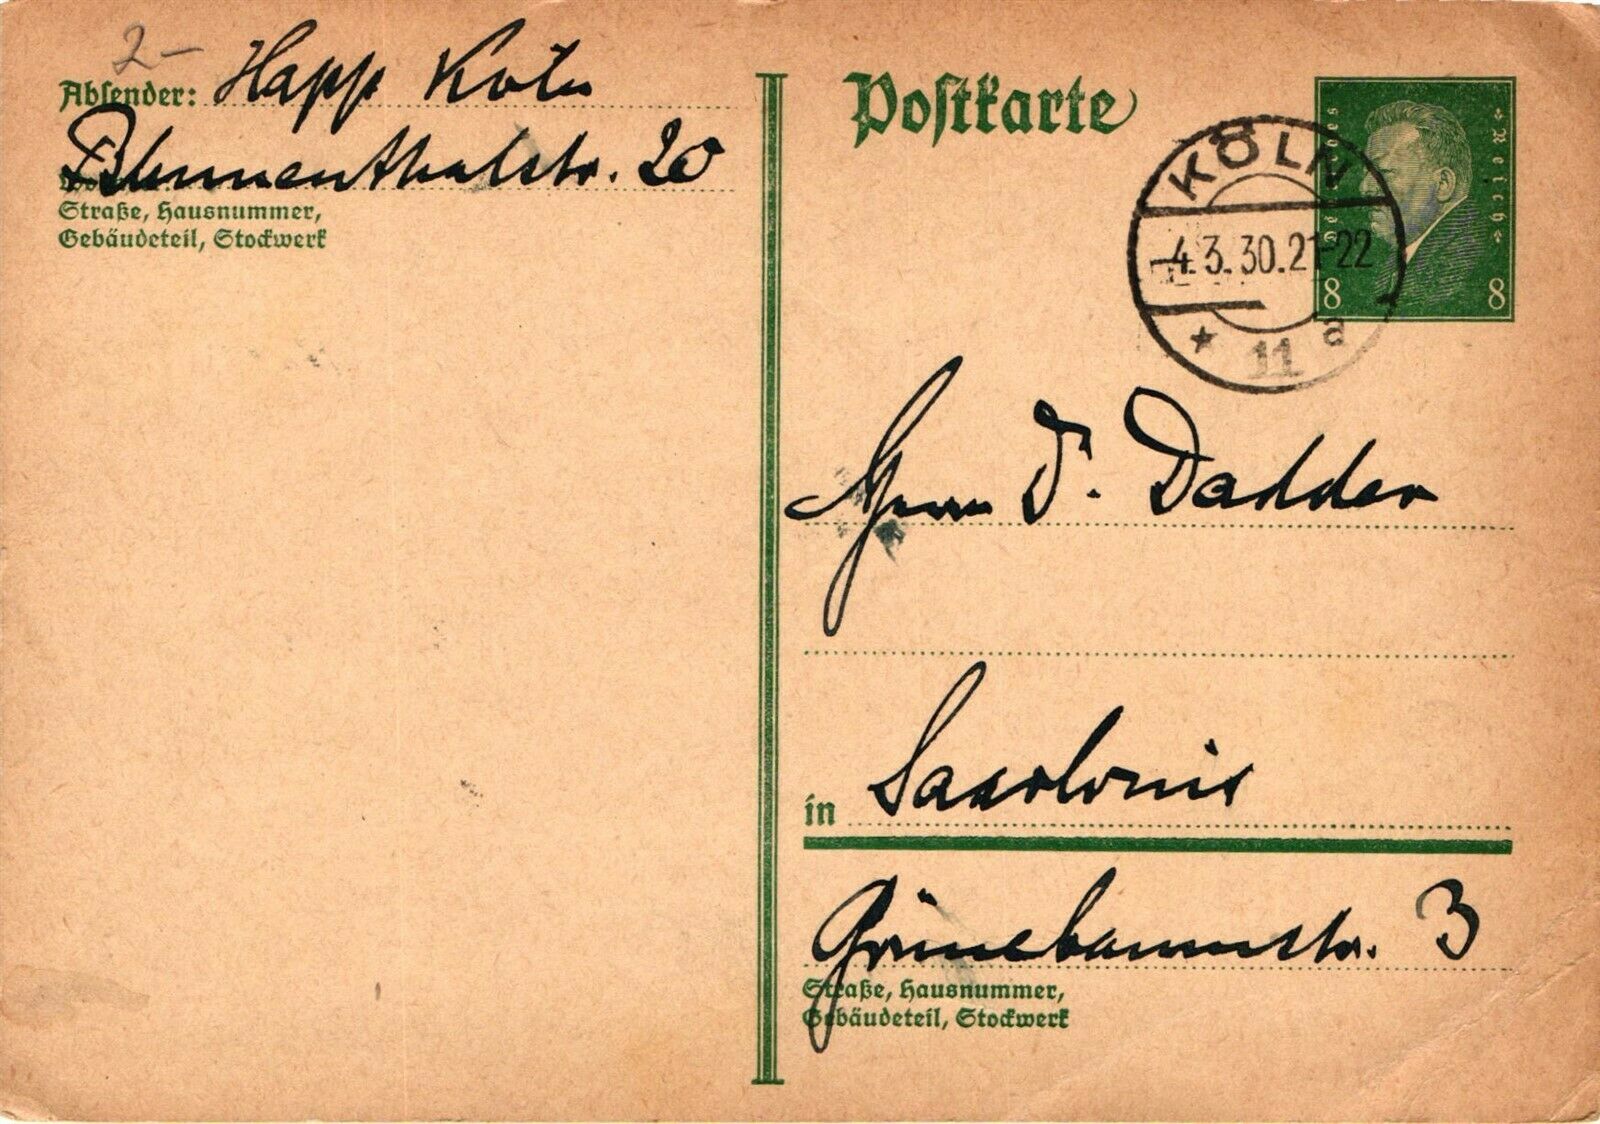 2-
Absender: Happ Köln
Blumenthalstr. 20
Straße, Hausnummer,
Gebäudeteil, Stockwerk
Postkarte
KÖLN
4.3.30.21-22
* 11 a
Deutsches
Reich
8 8
Herrn Dr. Dadder
in Saarlouis
Grünebaumstr. 3
Straße, Hausnummer,
Gebäudeteil, Stockwerk